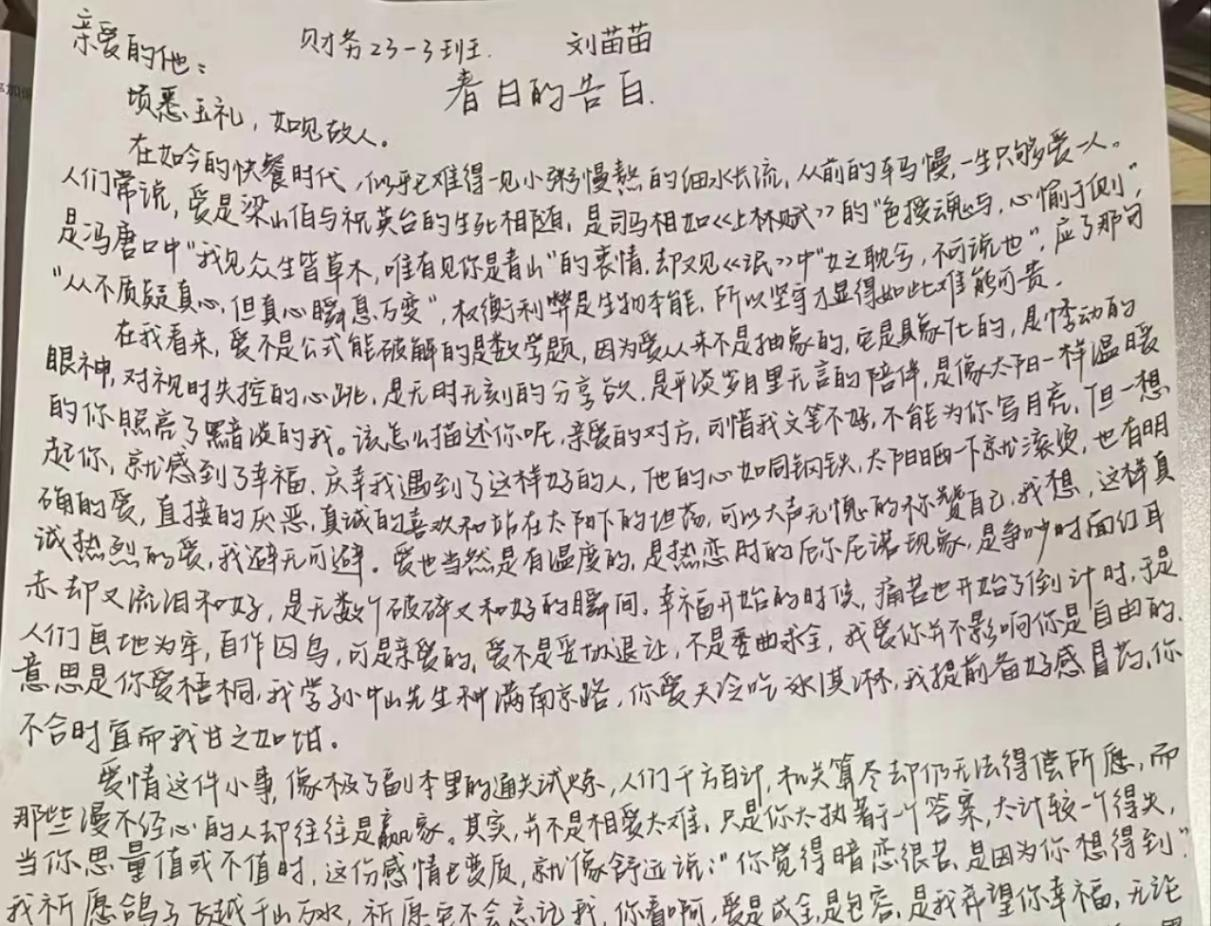 财务23-3班. 刘苗苗
亲爱的他：
春日的告白.
顷悉玉礼，如见故人。
在如今的快餐时代，似乎已难得一见小粥慢熬的细水长流，从前的车马慢，一生只够爱一人。
人们常说，爱是梁山伯与祝英台的生死相随，是司马相如《上林赋》的“色授魂与，心愉于侧”，
是冯唐口中“我见众生皆草木，唯有见你是青山”的衷情，却又见《氓》中“女之耽兮，不可说也”，应了那句
“从不质疑真心，但真心瞬息万变”，权衡利弊是生物本能，所以坚守才显得如此难能可贵.
在我看来，爱不是公式能破解的是数学题，因为爱从来不是抽象的，它是具象化的，是悸动的
眼神，对视时失控的心跳，是无时无刻的分享欲，是平淡岁月里无言的陪伴，是像太阳一样温暖
的你照亮了黑暗淡的我。该怎么描述你呢，亲爱的对方，可惜我文笔不好，不能为你写月亮，但一想
起你，就感到了幸福.庆幸我遇到了这样好的人，他的心如同钢铁，太阳晒一下就滚烫，也有明
确的爱，直接的厌恶，真诚的喜欢和站在太阳下的坦荡，可以大声无愧的称赞自己，我想，这样真
诚热烈的爱，我避无可避。爱也当然是有温度的，是热恋时的厄尔尼诺现象，是争吵时面红耳
赤却又流泪和好，是无数个破碎又和好的瞬间.幸福开始的时候，痛苦也开始了倒计时，于是
人们画地为牢，自作囚鸟，可是亲爱的，爱不是妥协退让，不是委曲求全，我爱你并不影响你是自由的.
意思是你爱梧桐，我学孙中山先生种满南京路，你爱天冷吃冰淇淋，我提前备好感冒药，你
不合时宜而我甘之如饴。
爱情这件小事，像极了副本里的通关试炼，人们千方百计，机关算尽却仍无法得偿所愿，而
那些漫不经心的人却往往是赢家。其实，并不是相爱太难，只是你太执著于一个答案，太计较一个得失，
当你思量值或不值时，这份感情已变质，就像舒远说：“你觉得暗恋很苦，是因为你想得到”
我祈愿鸽子飞越千山万水，祈愿它不会忘记我，你看啊，爱是成全，是包容，是我希望你幸福，无论